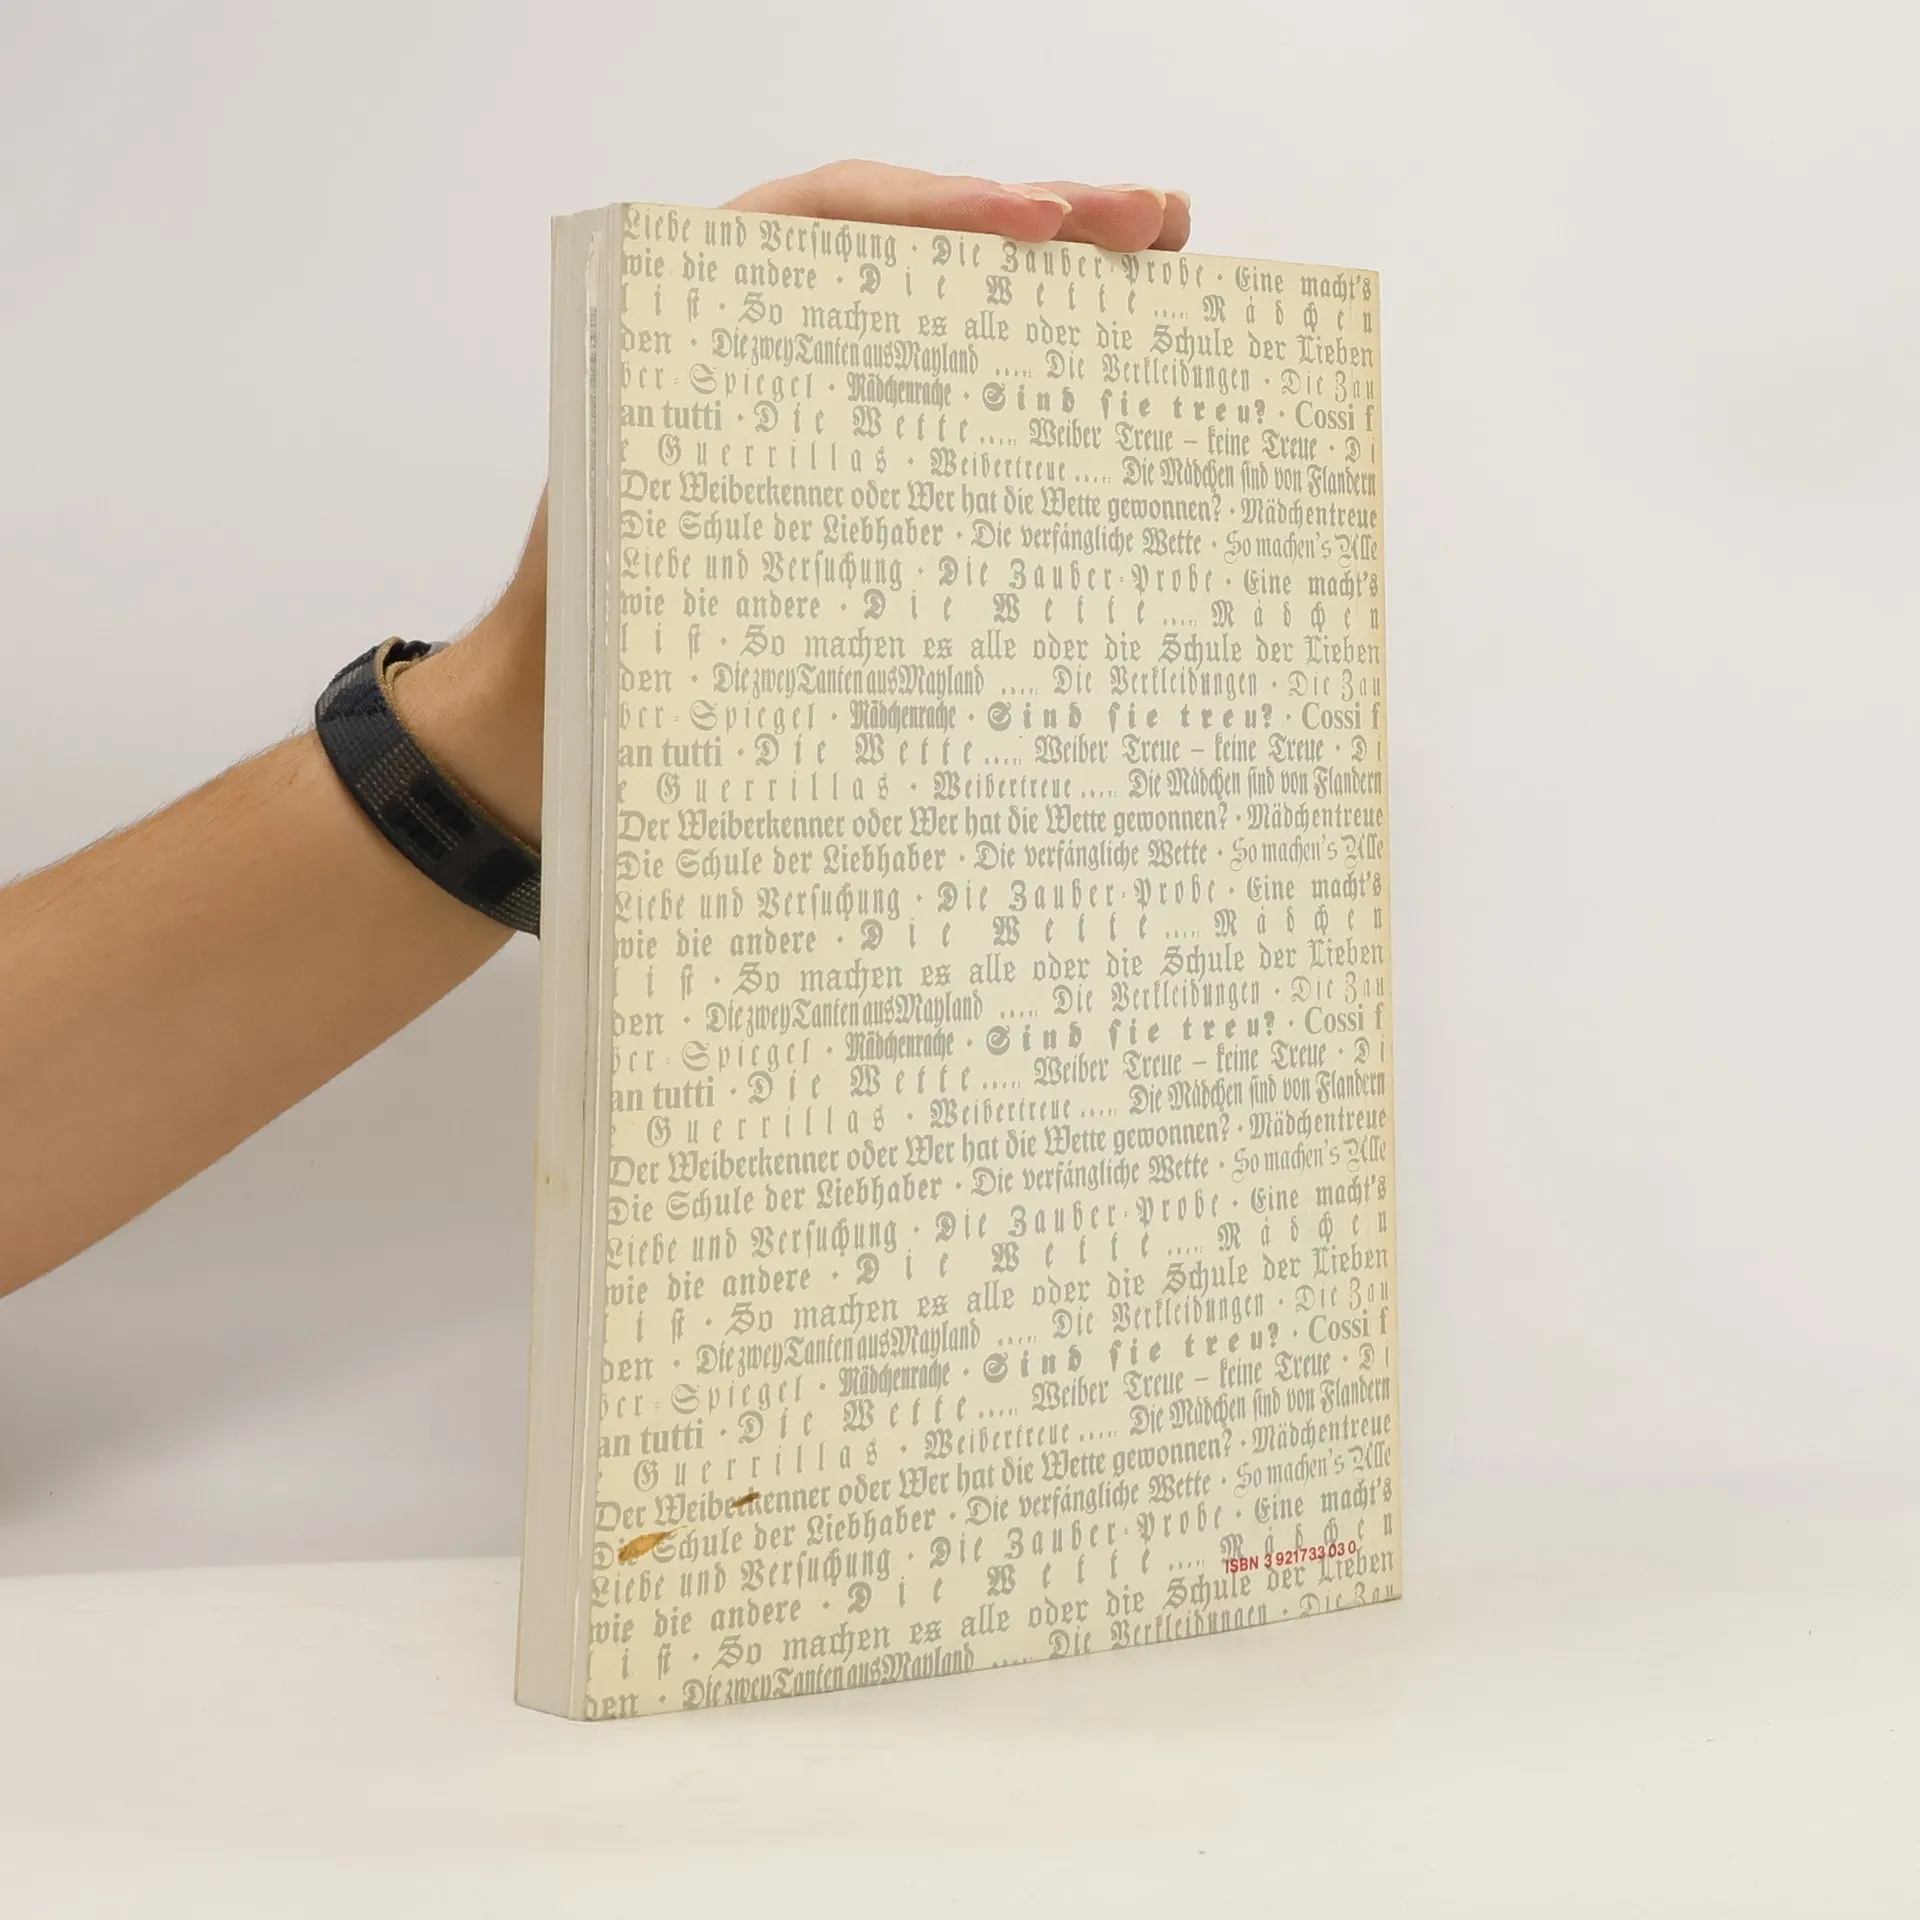 Liebe und Versuchung · Die Zauber-Probe · Eine macht's
wie die andere · Die Wette .... Mädchen
list · So machen es alle oder die Schule der Lieben
den · Die zwey Tanten aus Mayland .... Die Verkleidungen · Die Zau
ber-Spiegel · Mädchenrache · Sind sie treu? · Cossi f
an tutti · Die Wette .... Weiber Treue – keine Treue · Di
e Guerrillas · Weibertreue .... Die Mädchen sind von Flandern
Der Weiberkenner oder Wer hat die Wette gewonnen? · Mädchentreue
Die Schule der Liebhaber · Die verfängliche Wette · So machen's Alle
Liebe und Versuchung · Die Zauber-Probe · Eine macht's
wie die andere · Die Wette .... Mädchen
list · So machen es alle oder die Schule der Lieben
den · Die zwey Tanten aus Mayland .... Die Verkleidungen · Die Zau
ber-Spiegel · Mädchenrache · Sind sie treu? · Cossi f
an tutti · Die Wette .... Weiber Treue – keine Treue · Di
e Guerrillas · Weibertreue .... Die Mädchen sind von Flandern
Der Weiberkenner oder Wer hat die Wette gewonnen? · Mädchentreue
Die Schule der Liebhaber · Die verfängliche Wette · So machen's Alle
Liebe und Versuchung · Die Zauber-Probe · Eine macht's
wie die andere · Die Wette .... Mädchen
list · So machen es alle oder die Schule der Lieben
den · Die zwey Tanten aus Mayland .... Die Verkleidungen · Die Zau
ber-Spiegel · Mädchenrache · Sind sie treu? · Cossi f
an tutti · Die Wette .... Weiber Treue – keine Treue · Di
e Guerrillas · Weibertreue .... Die Mädchen sind von Flandern
Der Weiberkenner oder Wer hat die Wette gewonnen? · Mädchentreue
Die Schule der Liebhaber · Die verfängliche Wette · So machen's Alle
Liebe und Versuchung · Die Zauber-Probe · Eine macht's
wie die andere · Die Wette .... Mädchen
list · So machen es alle oder die Schule der Lieben
den · Die zwey Tanten aus Mayland .... Die Verkleidungen · Die Zau
ber-Spiegel · Mädchenrache · Sind sie treu? · Cossi f
an tutti · Die Wette .... Weiber Treue – keine Treue · Di
e Guerrillas · Weibertreue .... Die Mädchen sind von Flandern
Der Weiberkenner oder Wer hat die Wette gewonnen? · Mädchentreue
Die Schule der Liebhaber · Die verfängliche Wette · So machen's Alle
Liebe und Versuchung · Die Zauber-Probe · Eine macht's
wie die andere · Die Wette .... Mädchen
ISBN 3 921733 03 0
list · So machen es alle oder die Schule der Lieben
den · Die zwey Tanten aus Mayland .... Die Verkleidungen · Die Zau